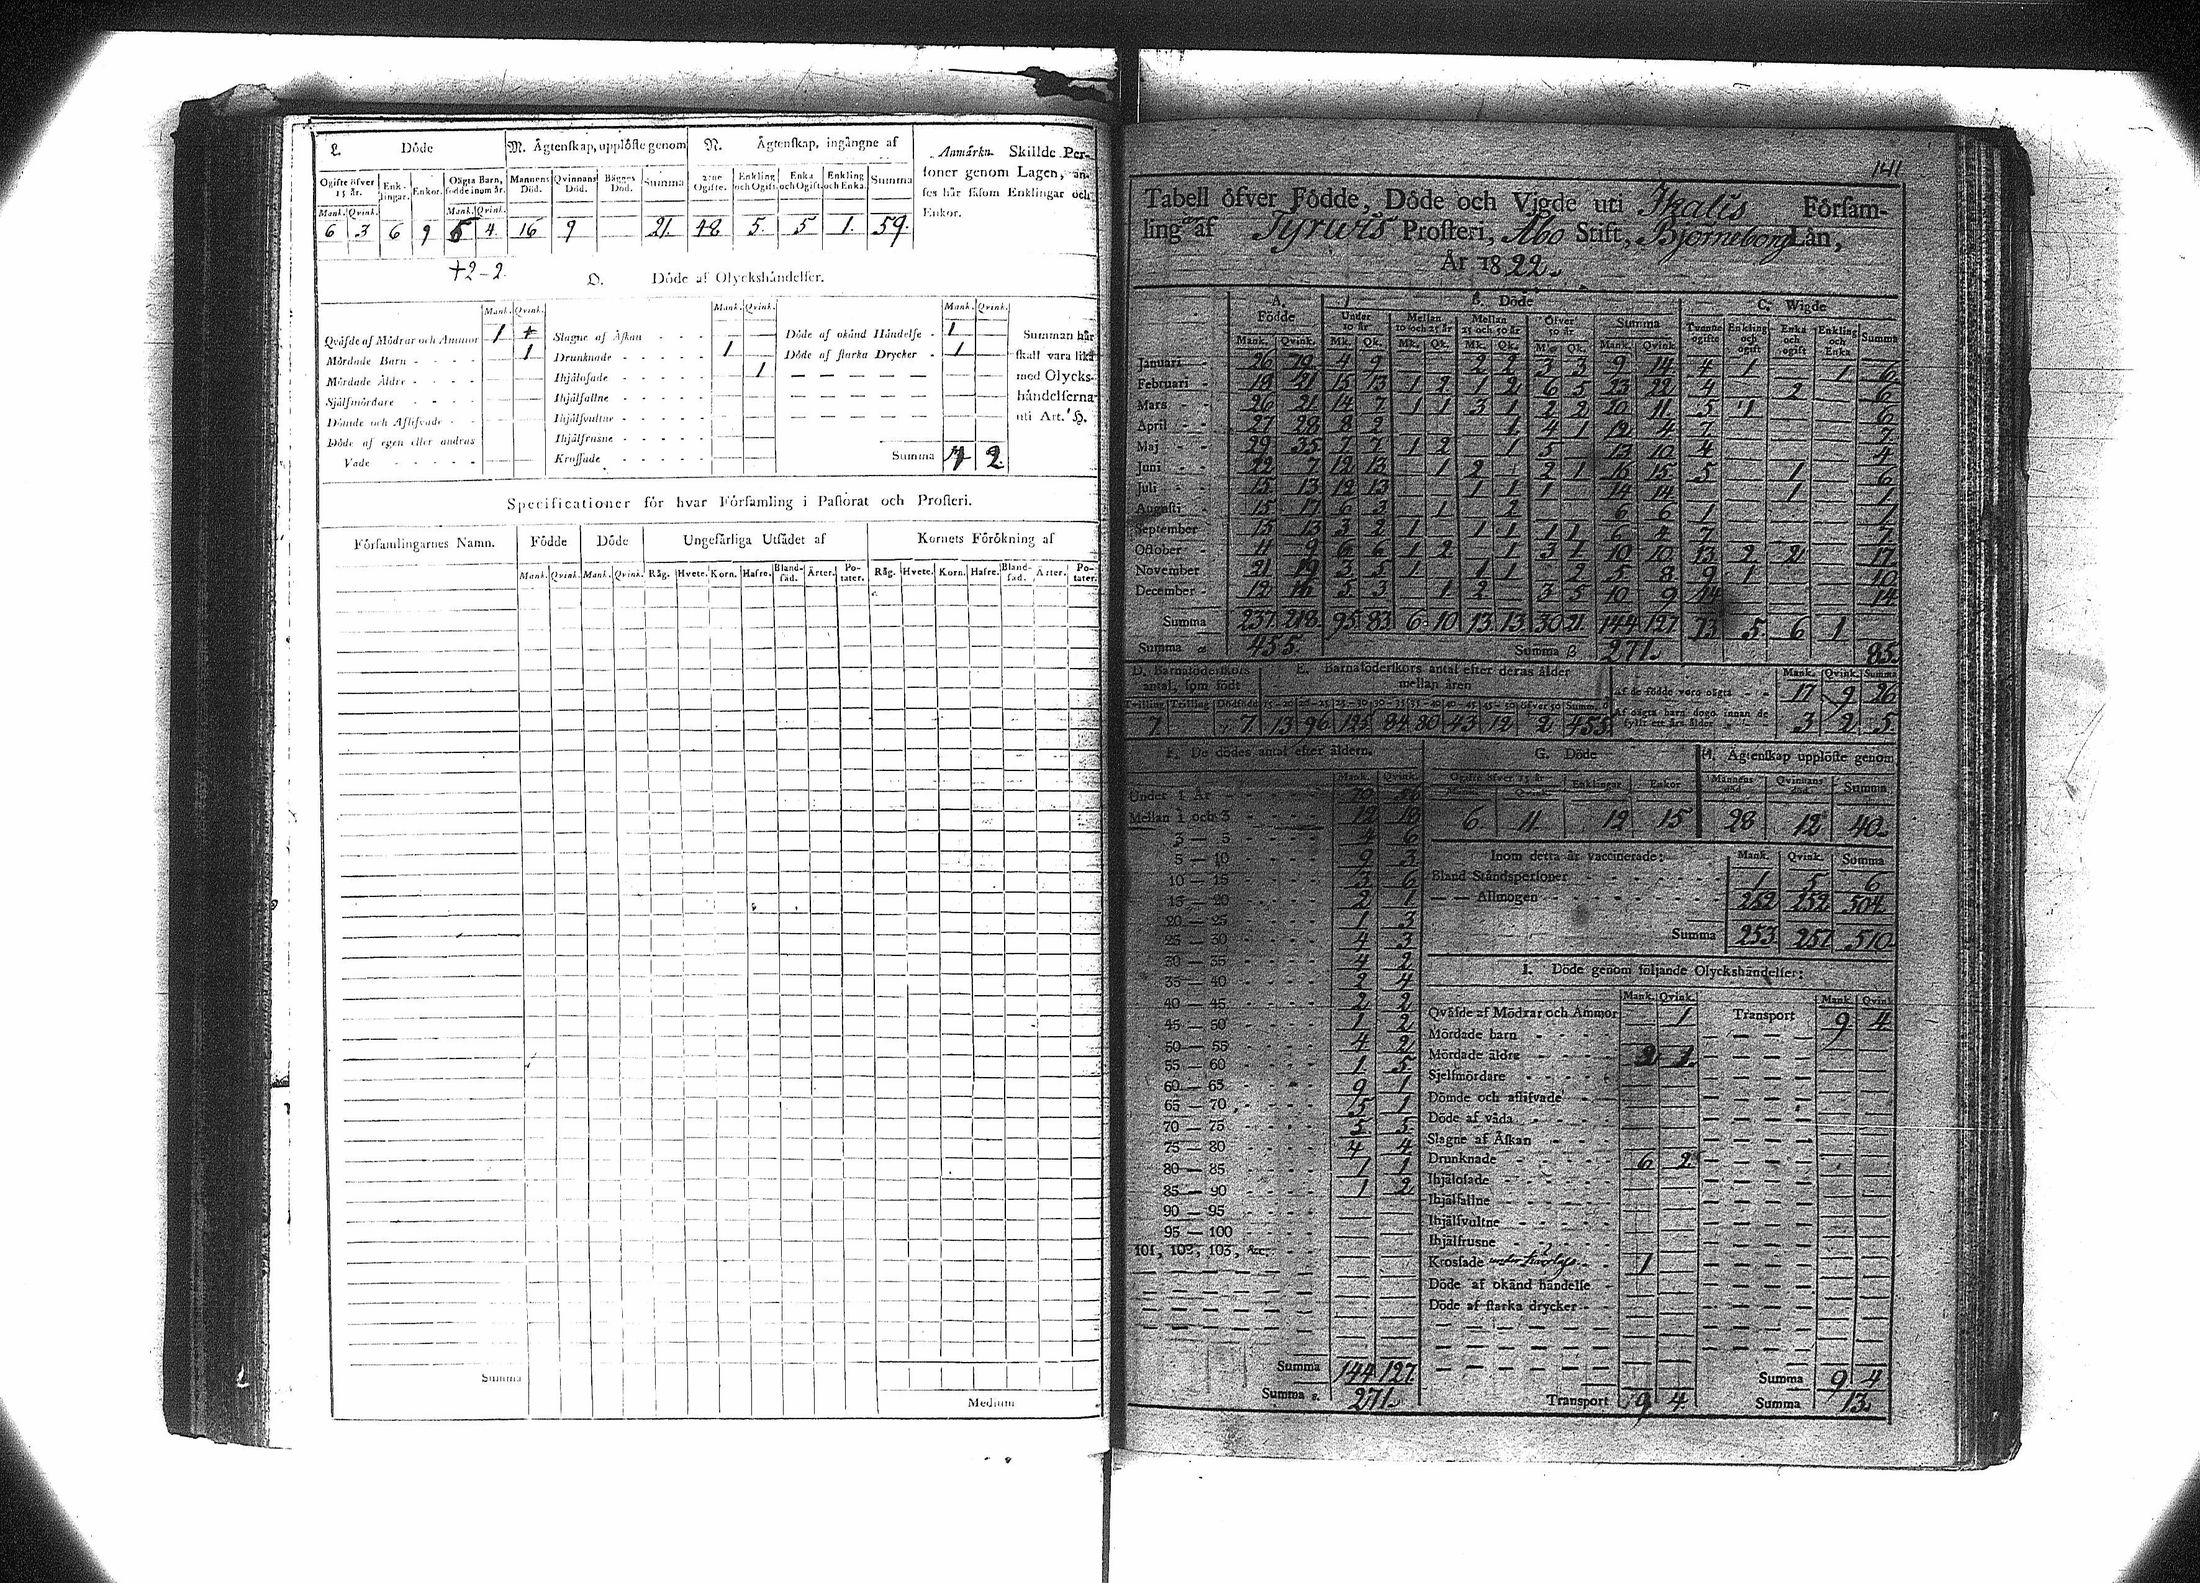 L. Döde
M. Ägtenskap, upplöste genom
N. Ägtenskap, ingångne af
Ogifte öfver 15 år. Enklingar. Enkor. Oägta Barn, födde inom år. Mannens Död. Qvinnans Död. Bägges Död. Summa 2:ne Ogifte. Enkling och Ogift. Enka och Ogift. Enkling och Enka. Summa
Mank. Qvink. Mank. Qvink.
6 3 6 9 5 4 16 9 21. 48 5. 5 1. 59.
+2-2.
Anmärkn. Skillde Per-
soner genom Lagen, an-
ses här såsom Enklingar och
Enkor.
O. Döde af Olyckshändelser.
Mank. Qvink. Mank. Qvink. Mank. Qvink.
Qväfde af Mödrar och Ammor 1 Slagne af Åskan Döde af okänd Händelse 1
Mördade Barn 1 Drunknade 1 Döde af starka Drycker 1
Mördade Äldre Ihjälosade 1
Själfmördare Ihjälfallne
Dömde och Aflifvade Ihjälsvultne
Döde af egen eller andras Ihjälfrusne
Våda Krossade Summa 2
Summan här
skall vara lika
med Olycks-
händelserna
uti Art. H.
Specificationer för hvar Församling i Pastorat och Prosteri.
Församlingarnes Namn. Födde Döde Ungefärliga Utsädet af Kornets Förökning af
Mank. Qvink. Mank. Qvink. Råg. Hvete. Korn. Hafre. Blandsäd. Ärter. Potater. Råg. Hvete. Korn. Hafre. Blandsäd. Ärter. Potater.
Summa
Medium
141
Tabell öfver Födde, Döde och Vigde uti Ikalis Försam-
ling af Tyrvis Prosteri, Åbo Stift, Björneborg Län,
År 1822.
A. Födde B. Döde C. Wigde
Under 10 år Mellan 10 och 25 år Mellan 25 och 50 år Öfver 50 år Summa Tvänne ogifte Enkling och ogift Enka och ogift Enkling och Enka Summa
Mank. Qvink. Mk. Qk. Mk. Qk. Mk. Qk. Mk. Qk. Mank. Qvink.
Januari 26 4 9 2 2 3 3 9 14 4 1 1 6
Februari 18 21 15 13 1 2 1 2 6 5 23 22 4 2 6
Mars 26 21 14 7 1 1 3 1 2 2 20 11 5 1 6
April 27 28 8 2 1 4 1 12 4 7 7
Maj 29 35 7 7 1 2 1 5 13 10 4 4
Juni 22 7 12 13 1 2 2 1 16 15 5 1 6
Juli 15 13 12 13 1 1 1 14 14 1 1
Augusti 15 17 6 3 1 2 6 6 1 1
September 15 13 3 2 1 1 1 1 1 6 4 7 7
October 11 9 6 6 1 2 1 3 1 10 10 13 2 2 17
November 21 19 3 5 1 1 1 2 5 8 9 1 10
December 12 5 3 1 2 3 5 10 9 14 14
Summa 237 218 95 83 6 10 13 13 30 21 144 127 73 5 6 1
Summa α 455. Summa β 271. 85.
D. Barnaföderskors antal, som födt
E. Barnaföderskors antal efter deras ålder mellan åren
Mank. Qvink. Summa
Tvilling Trilling Dödföde 15—20 20—25 25—30 30—35 35—40 40—45 45—50 Öfver 50 Summa
7 7 13 96 125 84 80 43 12 2 455
Af de födde voro oägta 17 9 26
Af oägta barn dogo innan de fyllt ett års ålder 3 2 5
F. De dödes antal efter åldern.
Mank. Qvink.
Under 1 År 70
Mellan 1 och 3 12 18
3 — 5 4 6
5 — 10 9 3
10 — 15 3 6
15 — 20 2 1
20 — 25 1 3
25 — 30 4 3
30 — 35 4 2
35 — 40 2 4
40 — 45 2 2
45 — 50 1 2
50 — 55 4 2
55 — 60 1 5
60 — 65 9 1
65 — 70 5 1
70 — 75 5 5
75 — 80 4 4
80 — 85 1 1
85 — 90 1 2
90 — 95
95 — 100
101, 102, 103, &c.
Summa 144 127
Summa 271.
G. Döde
Ogifte öfver 15 år Enklingar Enkor
Mank. Qvink.
6 11 12 15
H. Ägtenskap upplöste genom
Mannens död Qvinnans död Summa
28 12 40.
Inom detta år vaccinerade: Mank. Qvink. Summa
Bland Ståndspersoner 1 5 6
— — Allmogen 252 252 504
Summa 253 257 510
I. Döde genom följande Olyckshändelser:
Mank. Qvink. Mank. Qvink.
Qväfde af Mödrar och Ammor 1 Transport 9 4
Mördade barn
Mördade äldre 2 1
Sjelfmördare
Dömde och aflifvade
Döde af våda
Slagne af Åskan
Drunknade 6 2
Ihjälosade
Ihjälfallne
Ihjälsvultne
Ihjälfrusne
Krossade under 1
Döde af okänd händelse
Döde af starka drycker
Summa 9 4
Transport 9 4 Summa 13.